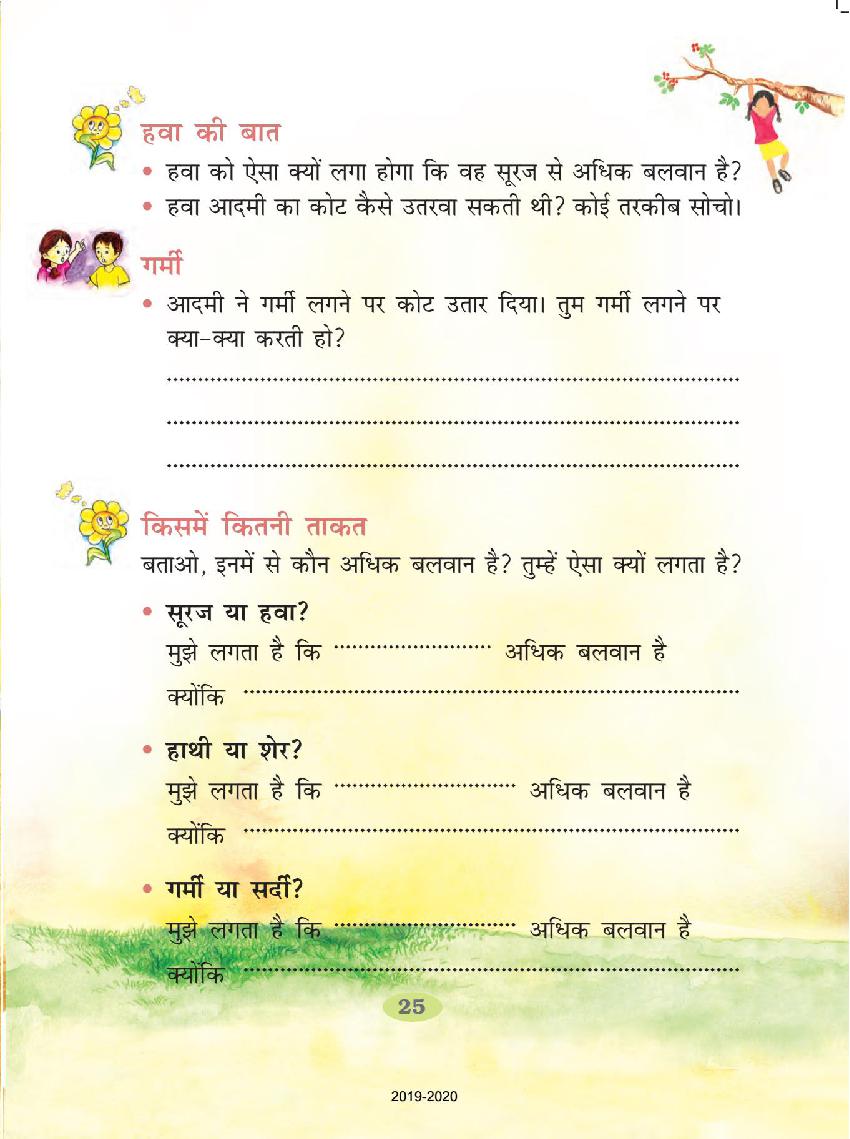 हवा की बात
• हवा को ऐसा क्यों लगा होगा कि वह सूरज से अधिक बलवान है?
• हवा आदमी का कोट कैसे उतरवा सकती थी? कोई तरकीब सोचो।
गर्मी
• आदमी ने गर्मी लगने पर कोट उतार दिया। तुम गर्मी लगने पर
क्या–क्या करती हो?
किसमें कितनी ताकत
बताओ, इनमें से कौन अधिक बलवान है? तुम्हें ऐसा क्यों लगता है?
• सूरज या हवा?
मुझे लगता है कि .......................... अधिक बलवान है
क्योंकि ..................................................................................
• हाथी या शेर?
मुझे लगता है कि .............................. अधिक बलवान है
क्योंकि ..................................................................................
• गर्मी या सर्दी?
मुझे लगता है कि .............................. अधिक बलवान है
क्योंकि ..................................................................................
25
2019-2020